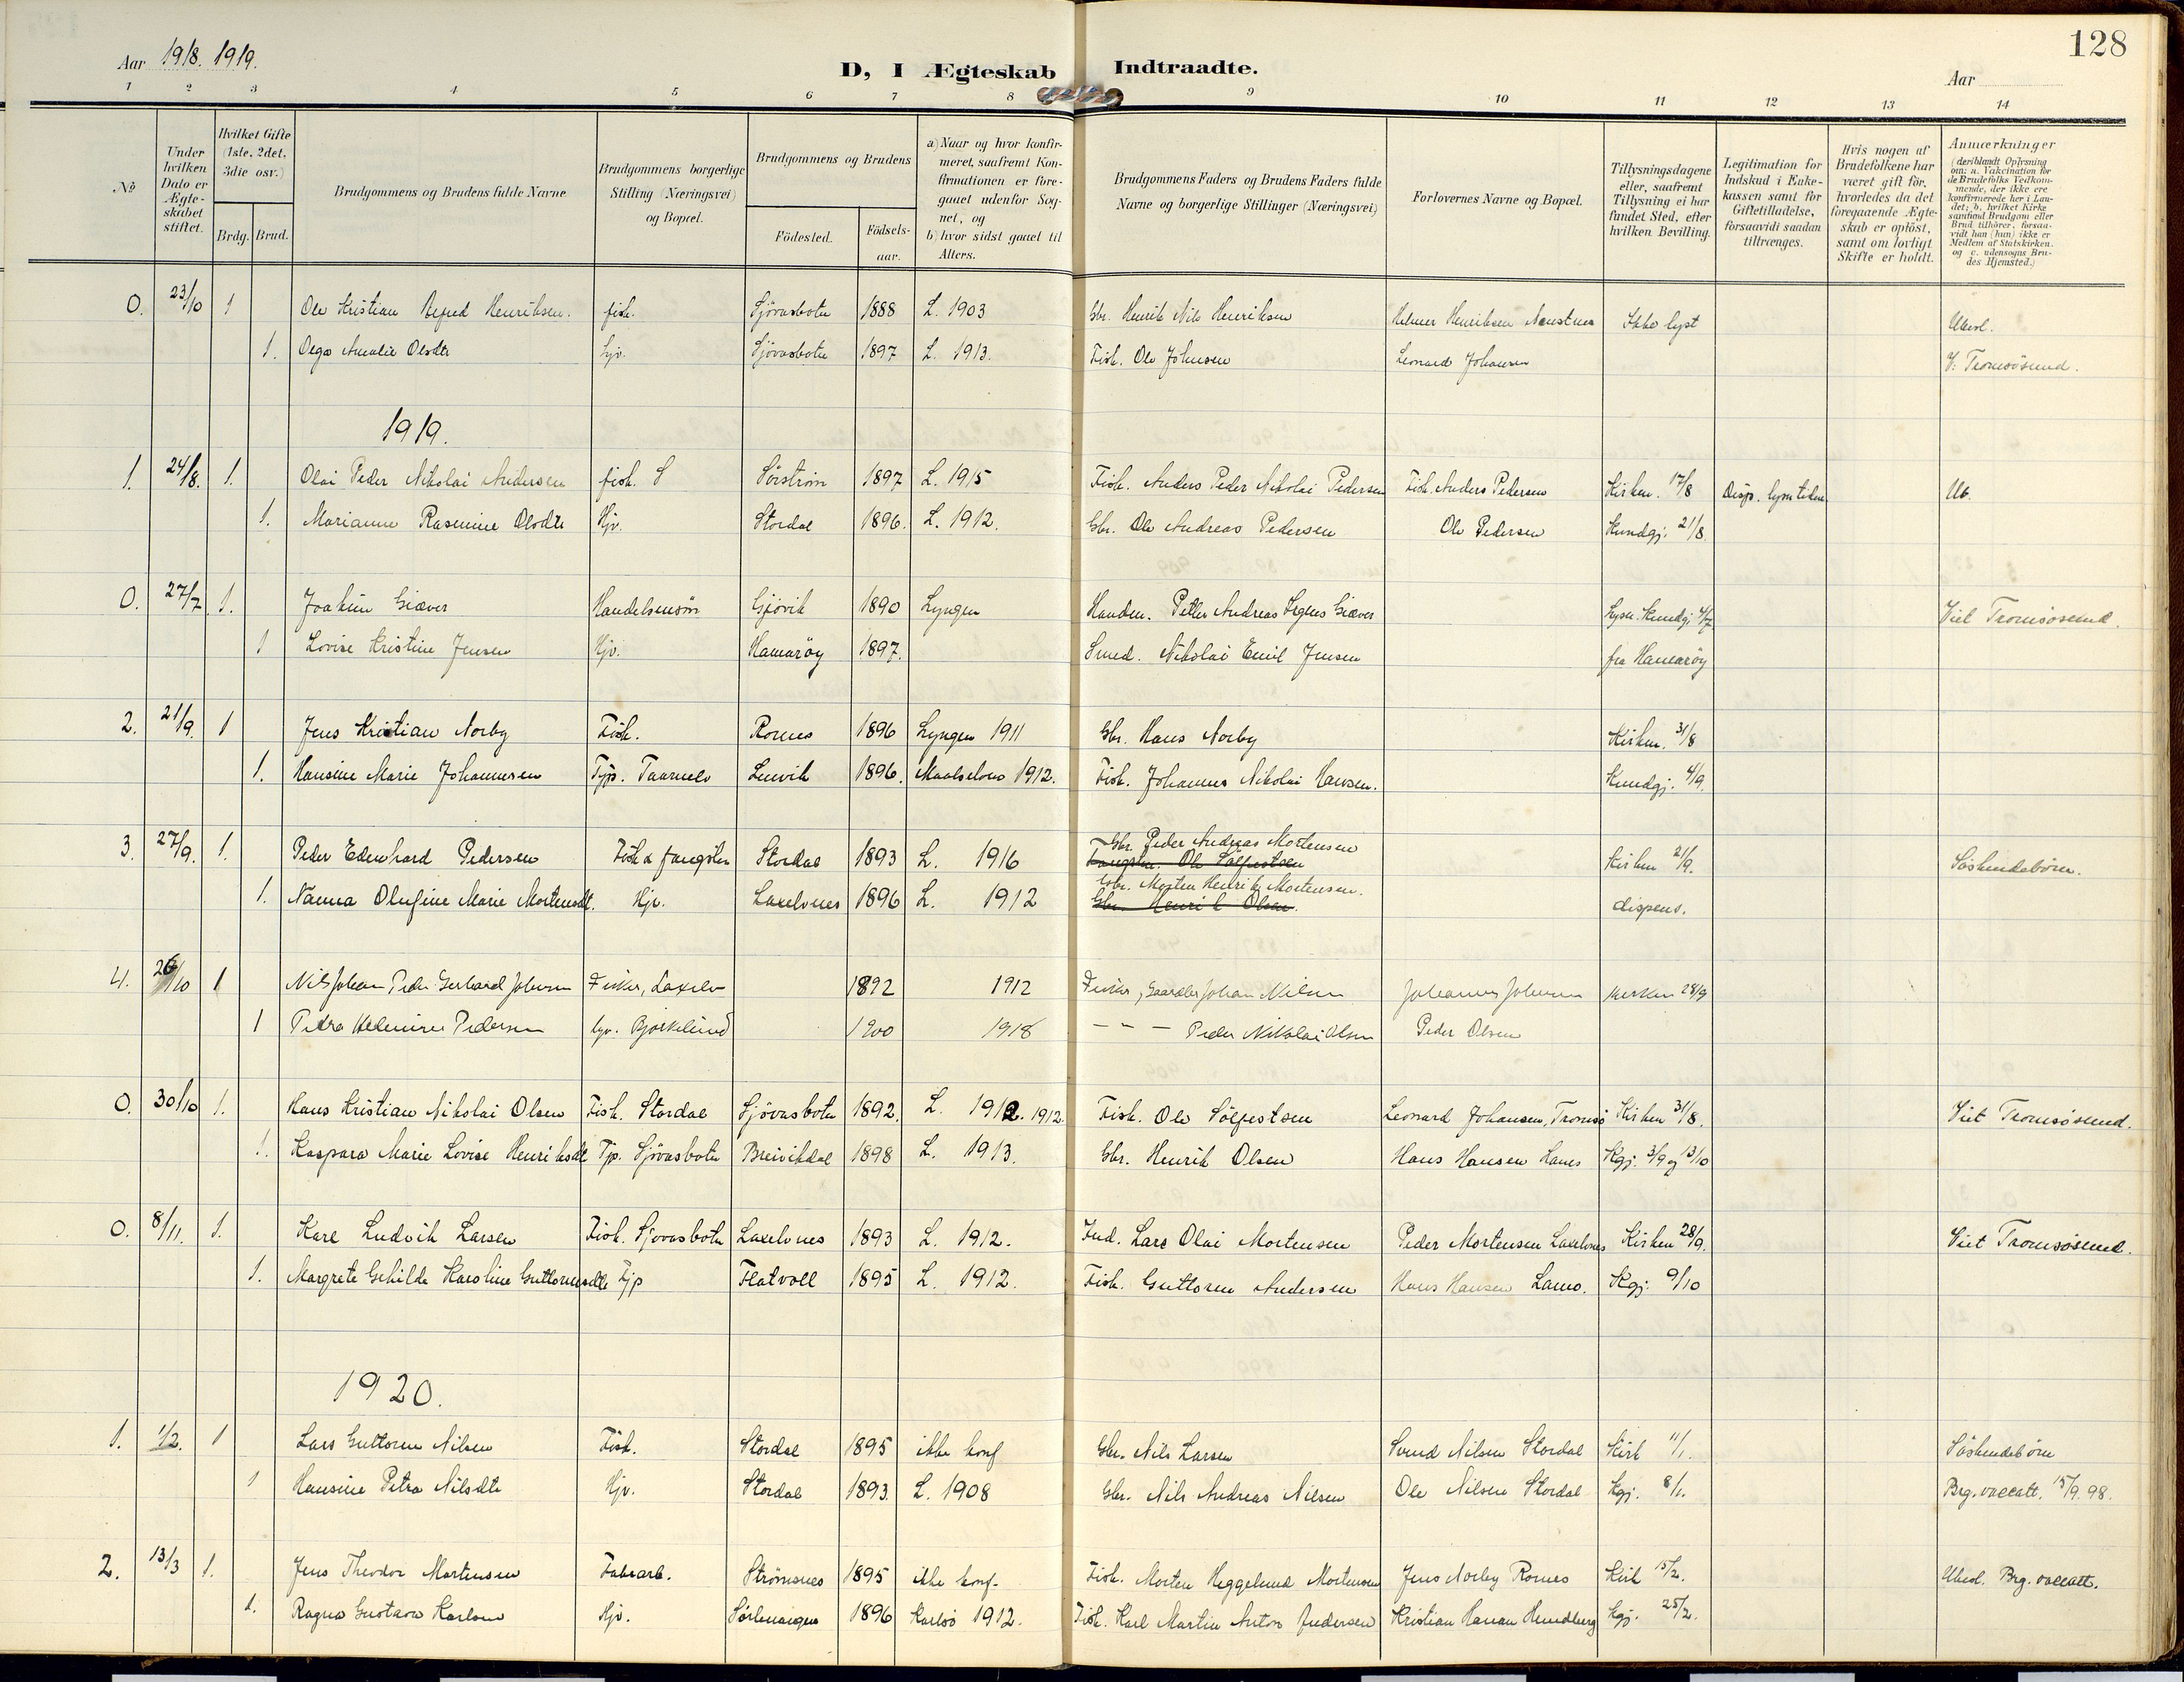 128
Aar 1918. 1919.
D, I Ægteskab Indtraadte.
Aar
1 2 3 4 5 6 7 8 9 10 11 12 13 14
№
Under hvilken Dato er Ægteskabet stiftet.
Hvilket Gifte (1ste, 2det, 3die osv.)
Brdg. Brud.
Brudgommens og Brudens fulde Navne
Brudgommens borgerlige Stilling (Næringsvei) og Bopæl.
Brudgommens og Brudens
Fødested. Fødsels-aar.
a) Naar og hvor konfirmeret, saafremt Konfirmationen er foregaaet udenfor Sognet, og
b) hvor sidst gaaet til Alters.
Brudgommens Faders og Brudens Faders fulde Navne og borgerlige Stillinger (Næringsvei)
Forlovernes Navne og Bopæl.
Tillysningsdagene eller, saafremt Tillysning ei har fundet Sted, efter hvilken Bevilling.
Legitimation for Indskud i Enkekassen samt for Giftetilladelse, forsaavidt saadan tiltrænges.
Hvis nogen af Brudefolkene har været gift før, hvorledes da det foregaaende Ægteskab er opløst, samt om lovligt Skifte er holdt.
Anmærkninger
(deriblandt Oplysning om: a. Vakcination for de Brudefolks Vedkommende, der ikke ere konfirmerede her i Landet; b. hvilket Kirkesamfund Brudgom eller Brud tilhører, forsaavidt han (hun) ikke er Medlem af Statskirken. og c. udensogns Brudes Hjemsted.)
0. 23/10 1 Ole Kristian Henriksen. fisk. Sjövasbotn 1888 L. 1903 Gbr. Henrik Nils Henriksen Helmer Henriksen Ikke lyst
1. Olga Amalie Olsdtr Hjv. Sjövasbotn 1897 L. 1913. Fisk. Ole Johnsen Leonard Johansen V. Tromsösund.
1919.
1. 24/8. 1. Olai Peder Nikolai Andersen fisk. S Sörström 1897 L. 1915 Fisk. Anders Peder Nikolai Pedersen Fisk. Anders Pedersen Kirken. 17/8 Disp. lysn.tiden
1. Marianne Rasmine Olsdtr Hjv. Stordal 1896. L. 1912. Gbr. Ole Andreas Pedersen Ole Pedersen Kundgj. 21/8.
0. 27/7 1. Joakim Giæver Handelsmön Gjövik 1890 Lyngen Handm. Petter Andreas Giæver Lysn. Kundgj. 4/7 Viet Tromsösund.
1 Lovise Kristine Jensen Hjv. Hamaröy 1897. Smed. Nikolai Emil Jensen fra Hamaröy
2. 21/9. 1 Jens Kristian Norby Fisk. Romes 1896 Lyngen 1911 Gbr. Hans Norby Kirken. 31/8
1. Hansine Marie Johannesen Tjp. Taarnelv Lenvik 1896. Maalselven 1912. Fisk. Johannes Nikolai Hansen. Kundgj. 4/9.
3. 27/9. 1. Peder Edevhard Pedersen Fisk & fangstm Stordal 1893 L. 1916 Gbr. Peder Andreas Mortensen Kirken 21/9. Söskendebörn.
Fangstm. Ole Sölfestsen
Gbr. Morten Henrik Mortensen.
1. Nanna Olufine Marie Mortensdt. Hjv. Laxelvnes 1896 L. 1912 Gbr. Henrik Olsen. dispens.
4. 26/10 1 Nils Johan Peder Gerhard Johnsen Fisker, Laxelv 1892 1912 Fisker, Gaardbr Johan Nilsen Johannes Johnsen Kirken 28/9
1 Petra Hedevine Pedersen hjv. Bjørkelund 1900 1918 – " – Peder Nikolai Olsen Peder Olsen
0. 30/10 1. Hans Kristian Nikolai Olsen Fisk. Stordal Sjövasbotn 1892. L. 1912. 1912. Fisk. Ole Sölfestsen Leonard Johansen, Tromsö Kirken 31/8. Viet Tromsösund.
1. Kaspara Marie Lovise Henriksdt Tjp. Sjövasbotn Breivikdal 1898 L. 1913. Gbr. Henrik Olsen Hans Hansen Lanes Kgj. 3/9 og 13/10
0. 8/11. 1. Karl Ludvik Larsen Fisk. Sjövasbotn Laxelvnes 1893 L. 1912. Ind. Lars Olai Mortensen Peder Mortensen Laxelvnes Kirken 28/9. Viet Tromsösund.
1. Margrete Gehilda Karoline Guttormsdtr Tjp Flatvoll 1895 L. 1912. Fisk. Guttorm Andersen Hans Hansen Lanes. Kgj. 9/10
1920.
1. 1/2. 1 Lars Guttorm Nilsen Fisk. Stordal 1895 ikke konf Gbr. Nils Larsen Svend Nilsen Stordal Kirk 11/1. Söskendebörn
1 Hansine Petra Nilsdtr Hjv. Stordal 1893. L. 1908 Gbr. Nils Andreas Nilsen Ole Nilsen Stordal Kgj. 8/1. Brg. vaccatt. 15/9. 98.
2. 13/3 1. Jens Theodor Mortensen Fabrarb. Strömsnes 1895 ikke konf. Fisk. Morten Heggelund Mortensen Jens Norby Romes Kirk 15/2. Brg. vaccatt.
1. Ragna Gustava Karlsen Hjv. Sörlenangen 1896 Karlsö 1912. Fisk. Karl Martin Anton Andersen Kristian Hansen Kgj. 25/2.